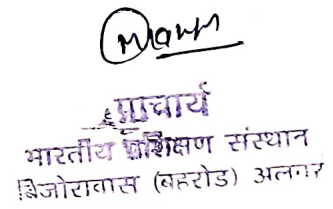 प्राचार्य
भारतीय प्रशिक्षण संस्थान
बिजोरावास (बहरोड) अलवर